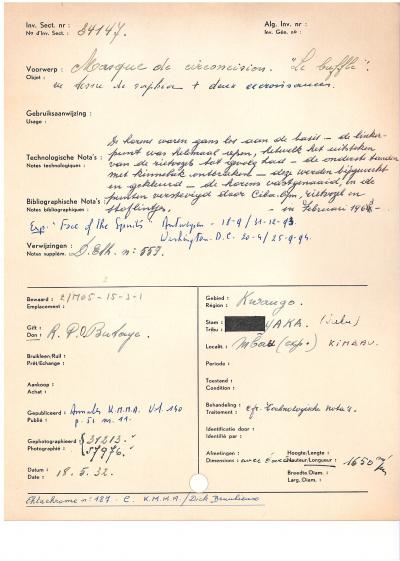 Inv. Sect. nr :
No d'Inv. Sect. : 84147.
Alg. Inv. nr :
Inv. Gén. no :
Voorwerp : Masque de circoncision. "Le buffle".
Objet : en tissu de raphia + deux excroissances.
Gebruiksaanwijzing :
Usage :
De horens waren gans los aan de basis – de linker-
punt was helemaal open, hetwelk het uitsteken
Technologische Nota's : van de rietvogel tot gevolg had – de onderste tanden
Notes technologiques : met kinnebak ontbraken – deze werden bijgewerkt
en gekleurd – de horens vastgenaaid, in de
Bibliographische Nota's : punten verstevigd door Ciba, rietvogel en
Notes bibliographiques : stoflintje. – in Februari
Exp: "Face of the Spirits" Antwerpen - 18-9/31-12-93.
Washington D.C. 20-4/25-9-94.
Verwijzingen :
Notes supplém. : D. Eth. n° 557.
Bewaard : 2/M05-15-3-1
Emplacement :
Gift :
Don : R. P. Butaye.
Bruikleen/Ruil :
Prêt/Echange :
Aankoop :
Achat :
Gepubliceerd : Annales K.M.M.A. Vol. 160
Publié : p. 51 n. 11.
Gephotographieerd : 31213.
Photographié : 57976.
Datum :
Date : 18.5.32.
Gebied :
Région : Kwango.
Stam :
Tribu : YAKA.
Lokalt : (exp.) KIMBAU.
Periode :
Toestand :
Condition :
Behandeling :
Traitement : cfr. technologische nota's.
Identificatie door :
Identifié par :
Afmetingen :
Dimensions : avec
Hoogte/Lengte :
Hauteur/Longueur : 1650 m/m
Breedte/Diam. :
Larg. Diam. :
Ektachrome n° 187 - C. K.M.M.A/Dick Beaulieux